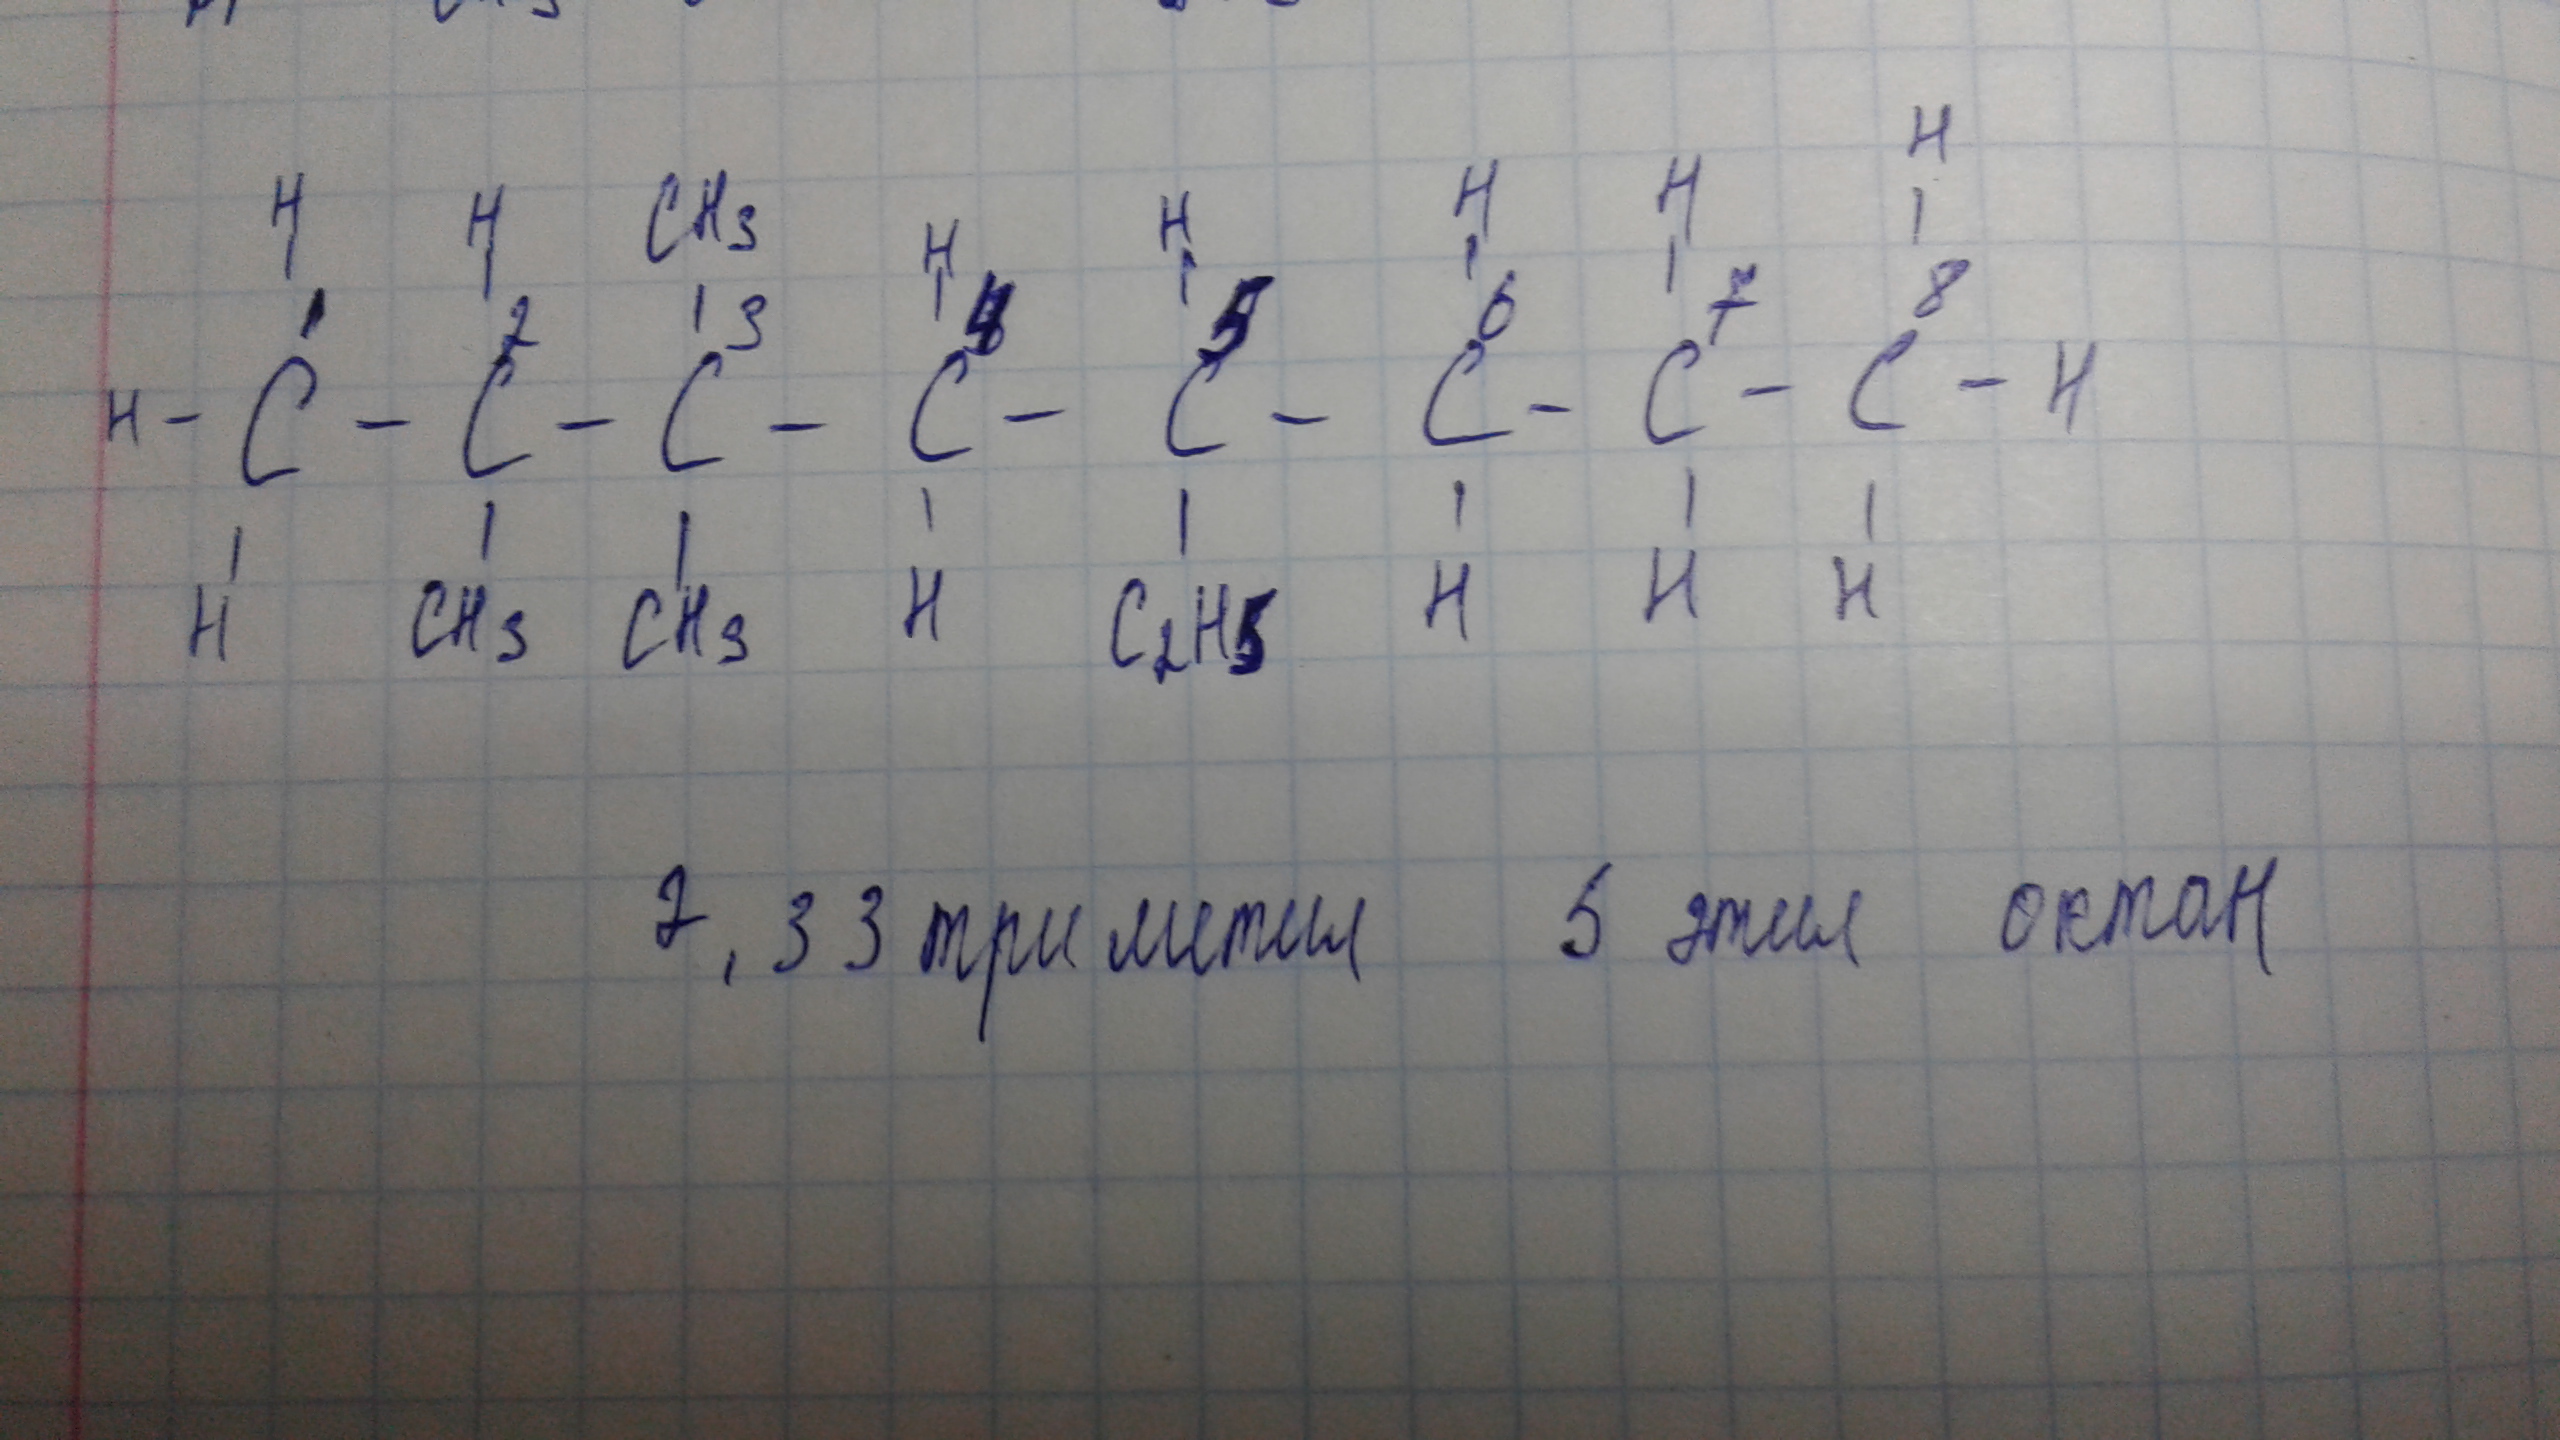 H H CH3 H H H H H
1 2 3 4 5 6 7 8
H - C - C - C - C - C - C - C - C - H
H CH3 CH3 H C2H5 H H H
2, 3 3 триметил 5 этил октан